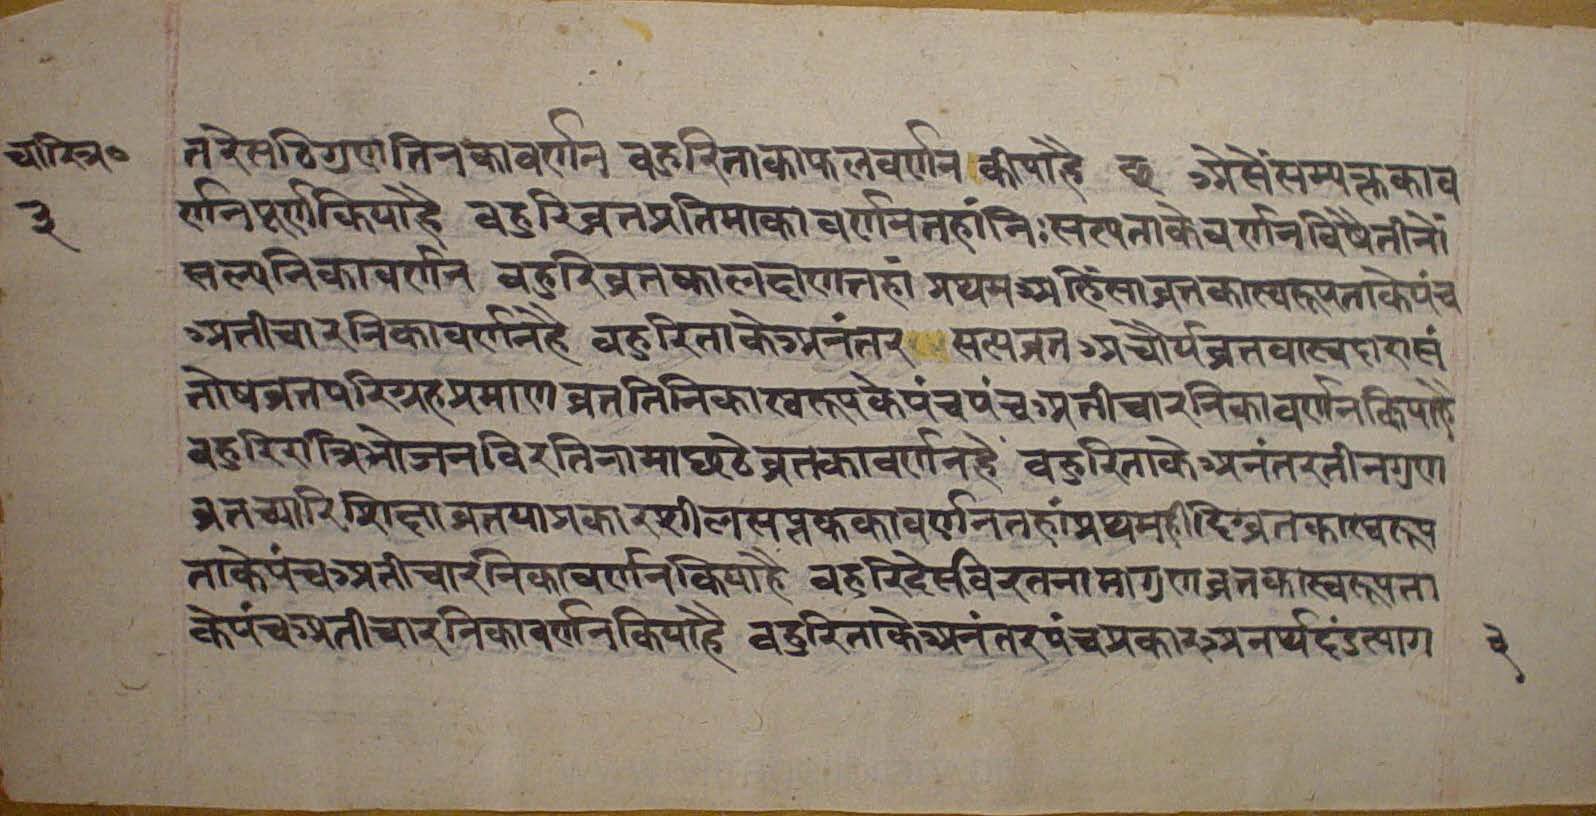 चारित्र०
३
तरेसठिगुणतिनकावर्णन वहुरिताकाफलवर्णन कीयाहै छ अैसेंसम्यक्तकाव
र्णनपूर्णकियाहै वहुरिव्रतप्रतिमाकावर्णनतहांनिःसल्यताकेवर्णनविषैतीनों
सल्यनिकावर्णन वहुरिव्रतकालक्षणतहां प्रथमअहिंसाव्रतकास्वरूपताकेपंच
अतीचारनिकावर्णनहै वहुरिताकेअनंतर सत्यव्रतअचौर्यव्रतवास्वदारासं
तोषव्रतपरिग्रहप्रमाणव्रततिनिकास्वरूपकेपंचपंचअतीचारनिकावर्णनकियाहै
वहुरिरात्रिभोजनविरतिनामाछठेव्रतकावर्णनहै वहुरिताकेअनंतरतीनगुण
व्रतच्यारिशिक्षाव्रतयाप्रकारशीलसप्तककावर्णनतहांप्रथमहीदिग्व्रतकास्वरूप
ताकेपंचअतीचारनिकावर्णनकियाहै वहुरिदेसविरतनामागुणव्रतकास्वरूपता
केपंचअतीचारनिकावर्णनकियाहै वहुरिताकेअनंतरपंचप्रकारअनर्थदंडत्याग
३